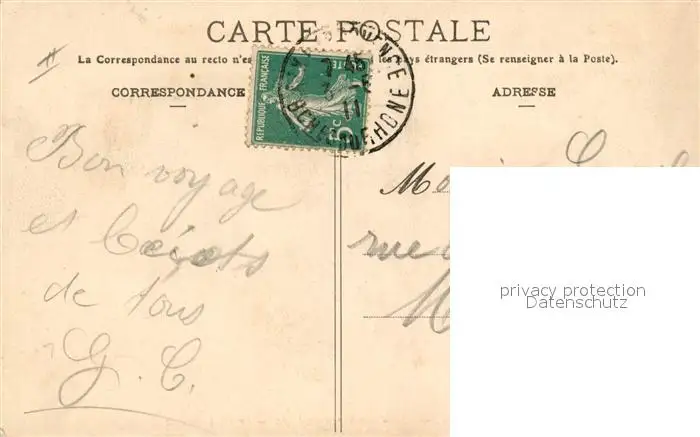 CARTE POSTALE
La Correspondance au recto n'es les pays étrangers (Se renseigner à la Poste).
CORRESPONDANCE
ADRESSE
REPUBLIQUE FRANÇAISE
POSTES
5c
RHONE
Bon voyage
et
de tous
G. C.
rue
privacy protection
Datenschutz